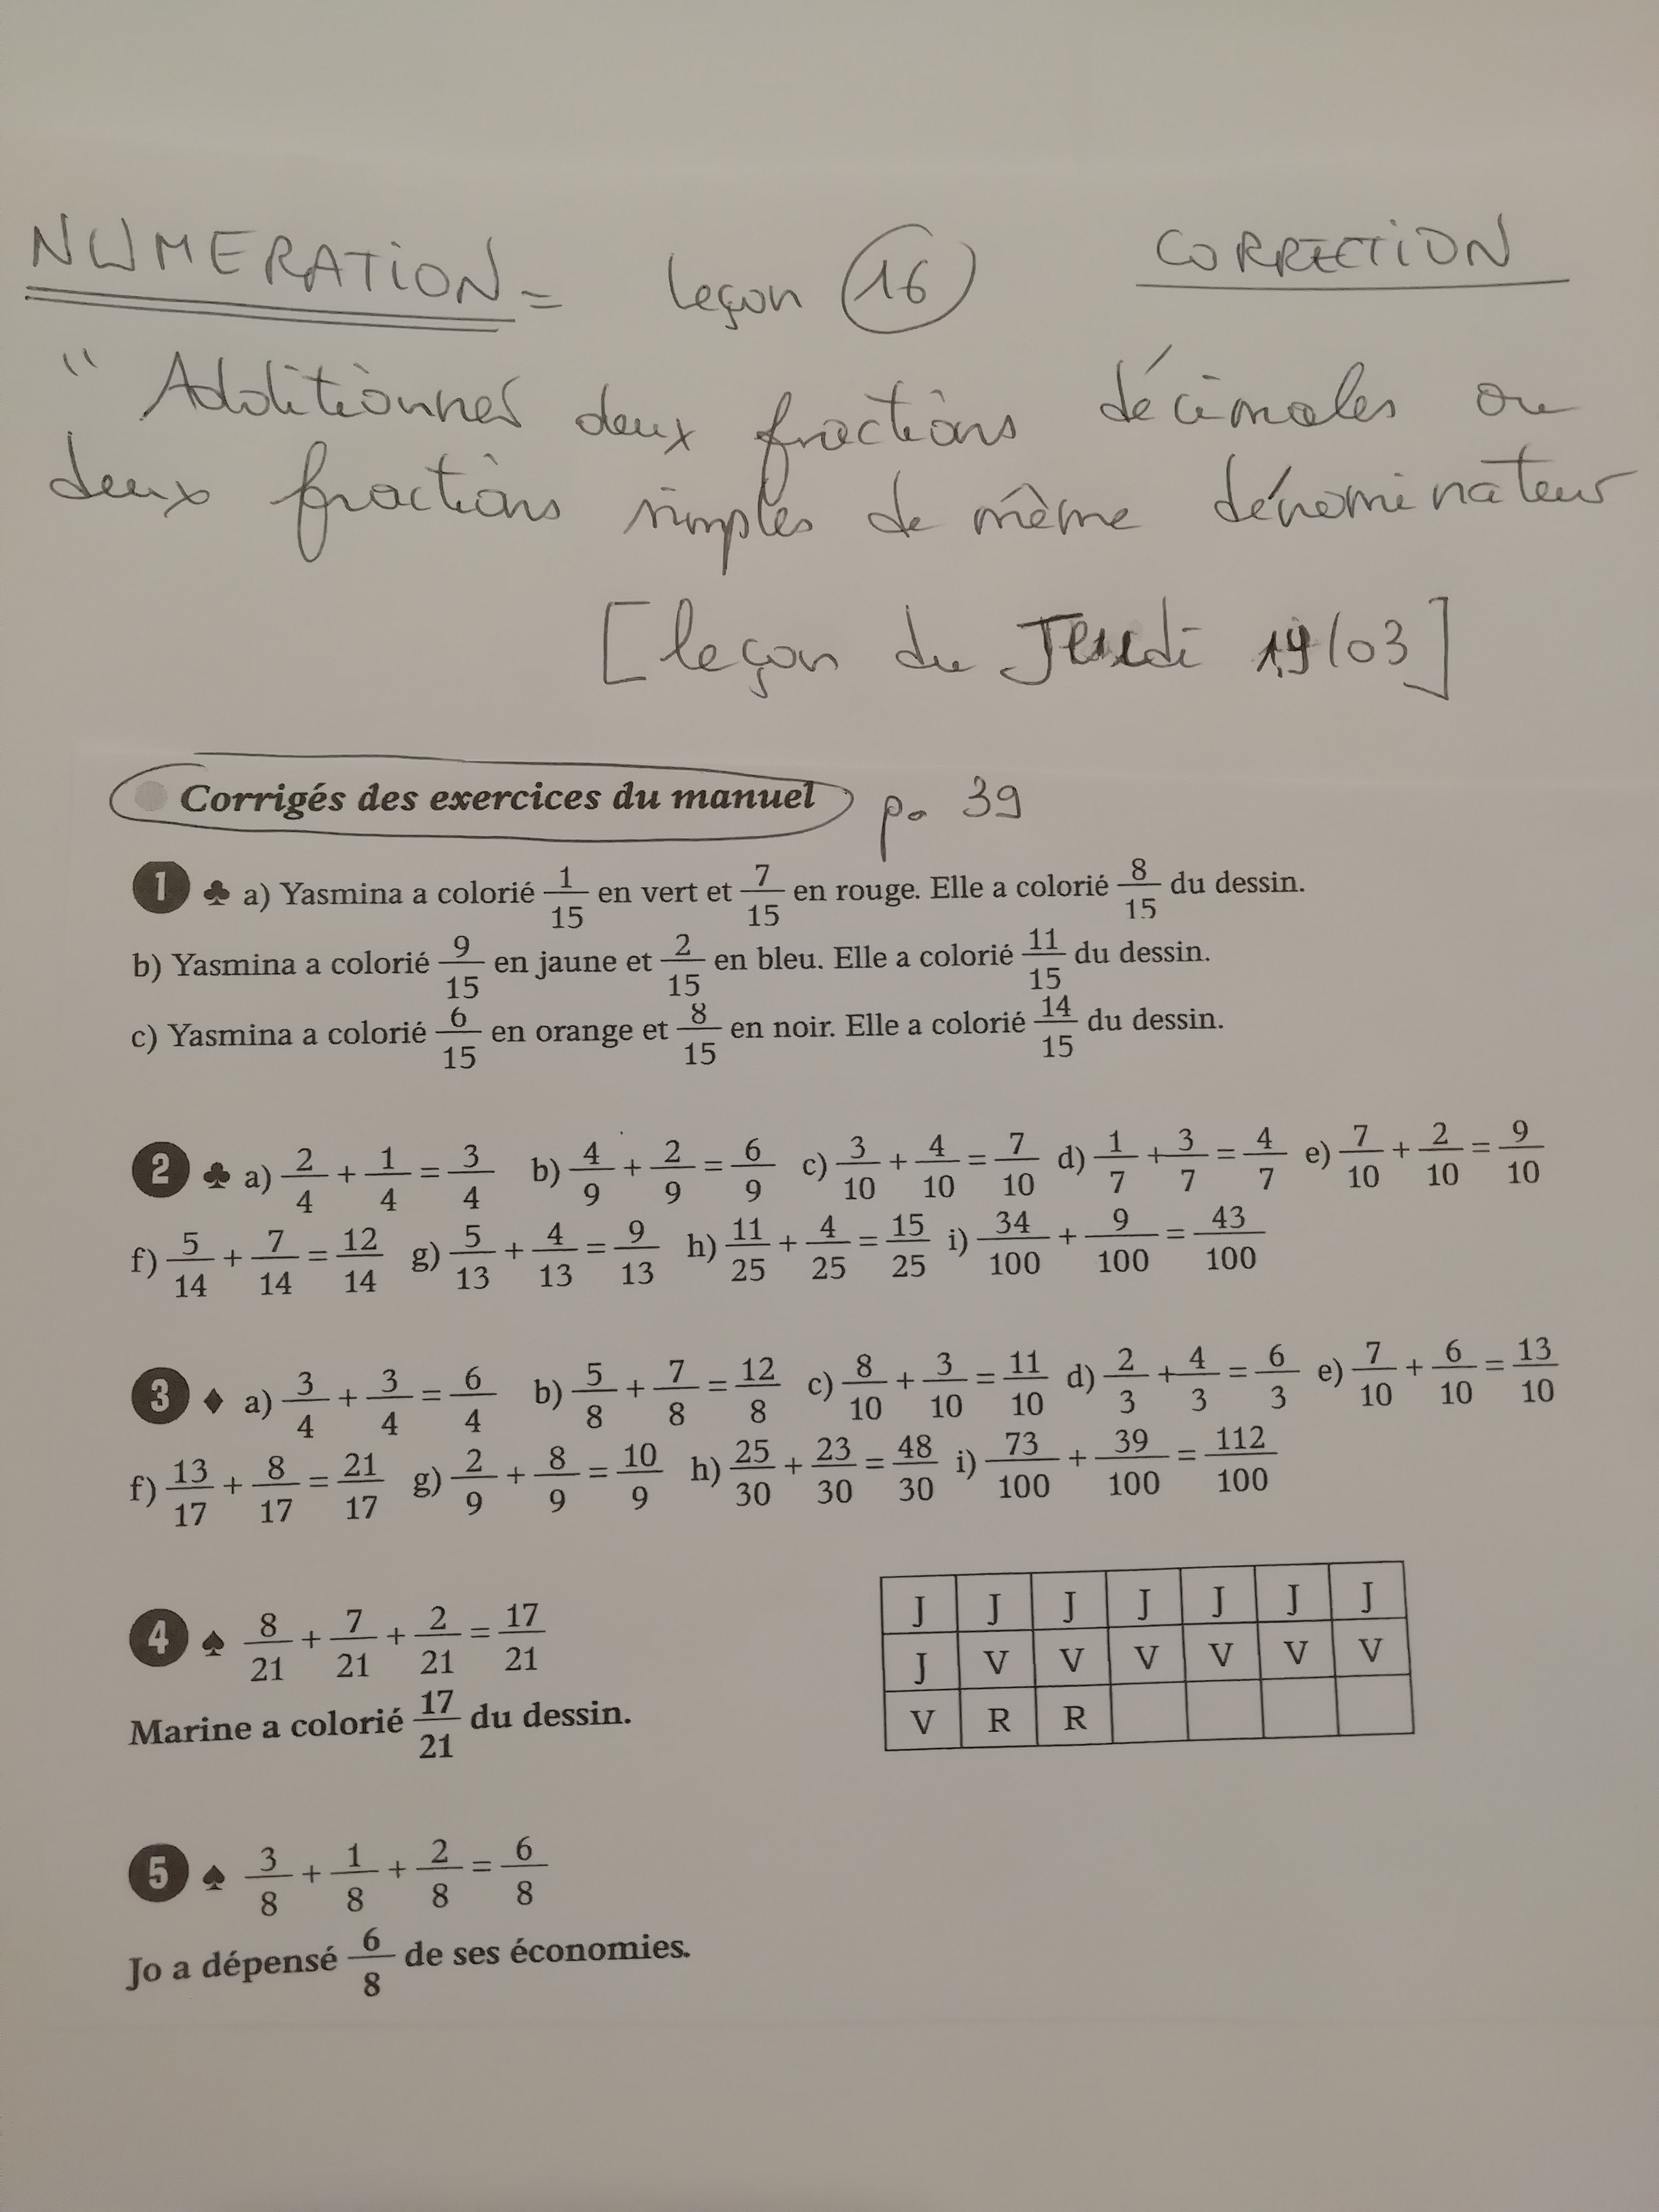 NUMERATION = leçon 16 CORRECTION
" Additionner deux fractions décimales ou
deux fractions simples de même dénominateur
[leçon du Jeudi 19/03]
Corrigés des exercices du manuel p. 39
1 ♣ a) Yasmina a colorié 1/15 en vert et 7/15 en rouge. Elle a colorié 8/15 du dessin.
b) Yasmina a colorié 9/15 en jaune et 2/15 en bleu. Elle a colorié 11/15 du dessin.
c) Yasmina a colorié 6/15 en orange et 8/15 en noir. Elle a colorié 14/15 du dessin.
2 ♣ a) 2/4 + 1/4 = 3/4 b) 4/9 + 2/9 = 6/9 c) 3/10 + 4/10 = 7/10 d) 1/7 + 3/7 = 4/7 e) 7/10 + 2/10 = 9/10
f) 5/14 + 7/14 = 12/14 g) 5/13 + 4/13 = 9/13 h) 11/25 + 4/25 = 15/25 i) 34/100 + 9/100 = 43/100
3 ♦ a) 3/4 + 3/4 = 6/4 b) 5/8 + 7/8 = 12/8 c) 8/10 + 3/10 = 11/10 d) 2/3 + 4/3 = 6/3 e) 7/10 + 6/10 = 13/10
f) 13/17 + 8/17 = 21/17 g) 2/9 + 8/9 = 10/9 h) 25/30 + 23/30 = 48/30 i) 73/100 + 39/100 = 112/100
4 ♠ 8/21 + 7/21 + 2/21 = 17/21
Marine a colorié 17/21 du dessin.
J J J J J J J
J V V V V V V
V R R
5 ♠ 3/8 + 1/8 + 2/8 = 6/8
Jo a dépensé 6/8 de ses économies.